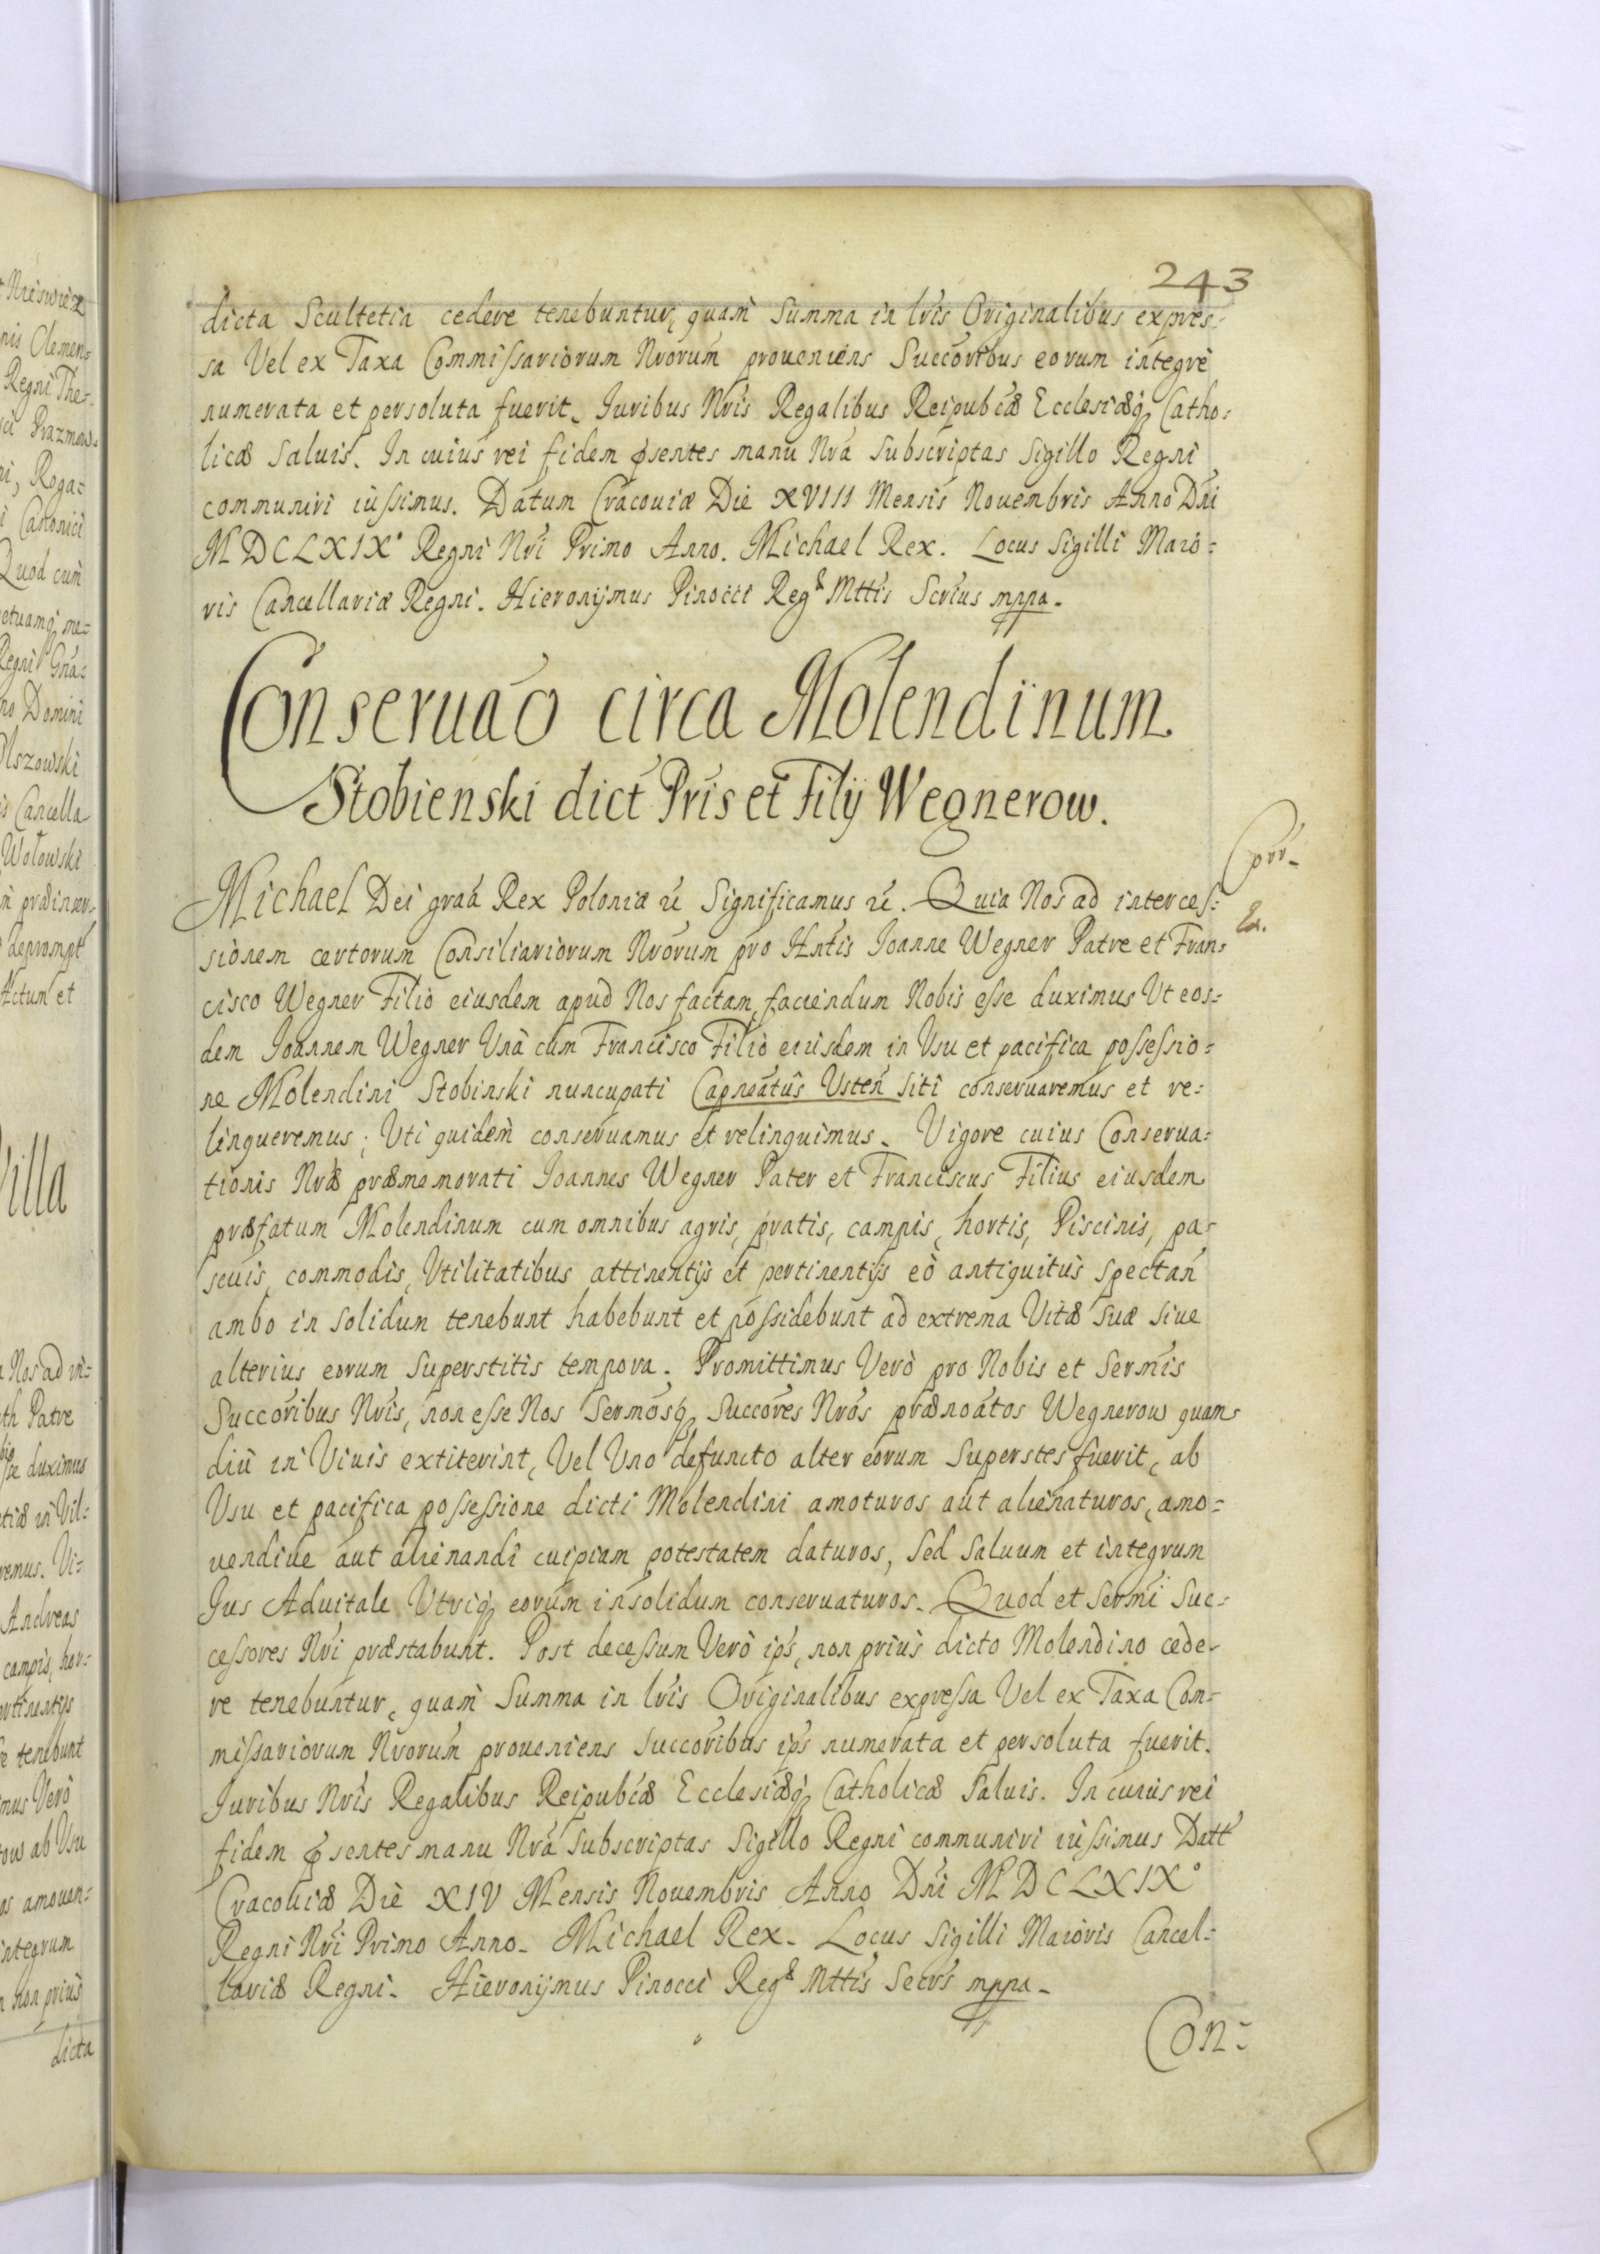 243
dicta Scultetia cedere tenebuntur, quam Summa in lris Originalibus expres-
sa Vel ex Taxa Commissariorum Nrorum proueniens Succoribus eorum integrè
numerata et persoluta fuerit. Iuribus Nris Regalibus Reipubcæ Ecclesiæq Catho-
licæ Saluis. In cuius rei fidem psentes manu Nra Subscriptas Sigillo Regni
communiri iussimus. Datum Cracouiæ Die XVIII Mensis Nouembris Anno Dni
MDCLXIX° Regni Nri Primo Anno. Michael Rex. Locus Sigilli Maio-
ris Cancellariæ Regni. Hieronymus Pinocci Regæ Mttis Scrius mppa.
Conseruao circa Molendinum
Stobienski dict Pris et Filij Wegnerow.
Michael Dei graa Rex Poloniæ Significamus. Quia Nos ad interces-
sionem certorum Consiliariorum Nrorum pro Hntis Ioanne Wegner Patre et Fran-
cisco Wegner Filio eiusdem apud Nos factam, faciendum Nobis esse duximus Ut eos-
dem Ioannem Wegner Unà cum Francisco Filio eiusdem in Usu et pacifica possessio-
ne Molendini Stobinski nuncupati Capneatûs Usten siti conseruaremus et re-
linqueremus; Uti quidem conseruamus et relinquimus. Vigore cuius Conserua-
tionis Nræ præmemorati Ioannes Wegner Pater et Franciscus Filius eiusdem
præfatum Molendinum cum omnibus agris, pratis, campis, hortis, Piscinis, pa-
scuis, commodis, Utilitatibus attinentijs et pertinentijs eò antiquitùs spectan
ambo in solidum tenebunt habebunt et possidebunt ad extrema Vitæ suæ siue
alterius eorum superstitis tempora. Promittimus Verò pro Nobis et Sermis
Succoribus Nris, non esse Nos Sermosq Succores Nros prænoatos Wegnerow quam
diù in Viuis extiterint, Vel Uno defuncto alter eorum Superstes fuerit, ab
Usu et pacifica possessione dicti Molendini amoturos aut alienaturos, amo-
uendiue aut alienandi cuipiam potestatem daturos, Sed Saluum et integrum
Ius Aduitale Utriq eorum insolidum conseruaturos. Quod et Sermi Suc-
cessores Nri præstabunt. Post decessum Verò ips, non prius dicto Molendino cede-
re tenebuntur, quam Summa in lris Originalibus expressa Vel ex Taxa Com-
missariorum Nrorum proueniens Succoribus ips numerata et persoluta fuerit.
Iuribus Nris Regalibus Reipubcæ Ecclesiæq Catholicæ Saluis. In cuius rei
fidem psentes manu Nra Subscriptas Sigillo Regni communiri iussimus Datt
Cracouiæ Die XIV Mensis Nouembris Anno Dni MDCLXIX°
Regni Nri Primo Anno. Michael Rex. Locus Sigilli Maioris Cancel-
lariæ Regni. Hieronymus Pinocci Regæ Mttis Secrs mppa.
Con-